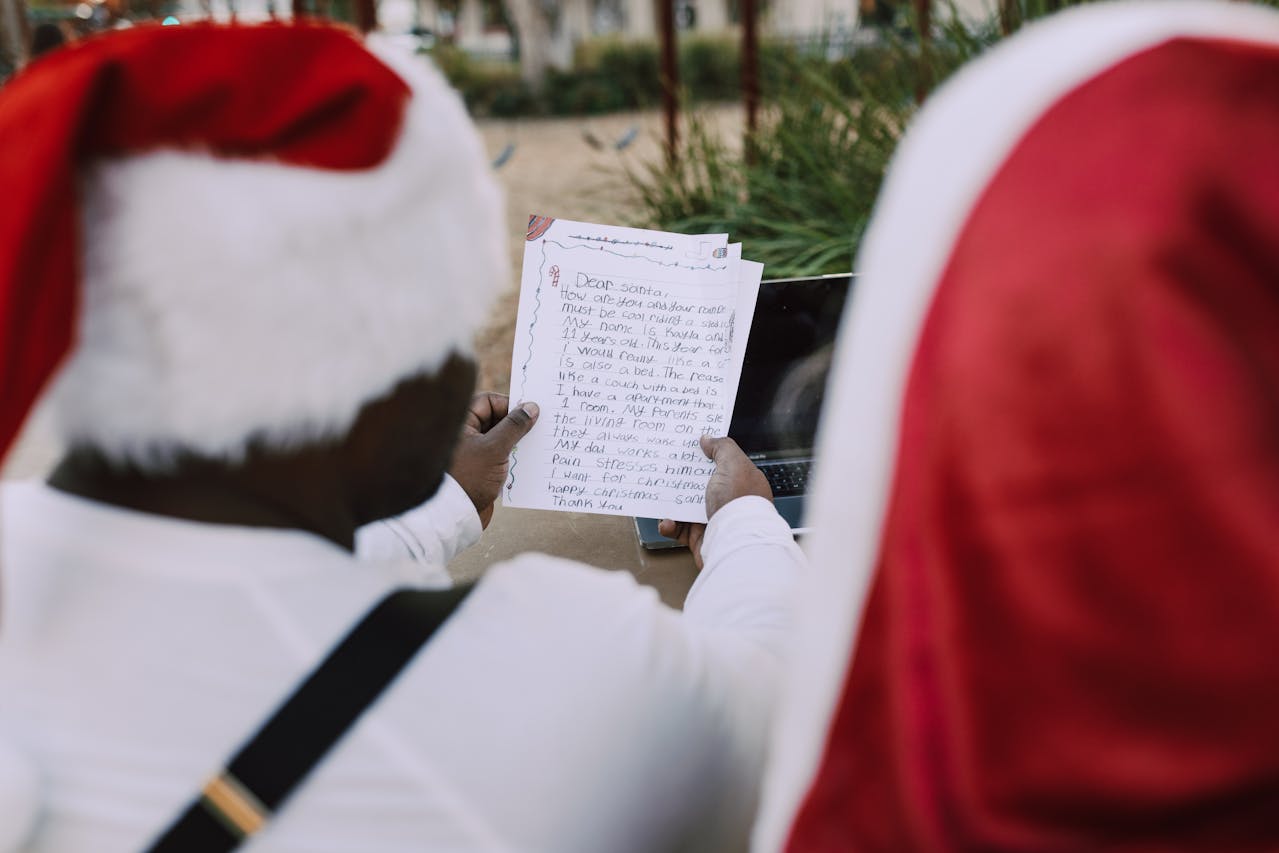 Dear santa,
How are you and your
must be cool riding a
My name is Kayla and
11 years old. This year for
i would really like a
is also a bed. The
like a couch with a bed is
I have a apartment that
1 room. My Parents
the living room on the
they always wake up
My dad works alot
Pain stresses him
i want for christmas
happy christmas
Thank you